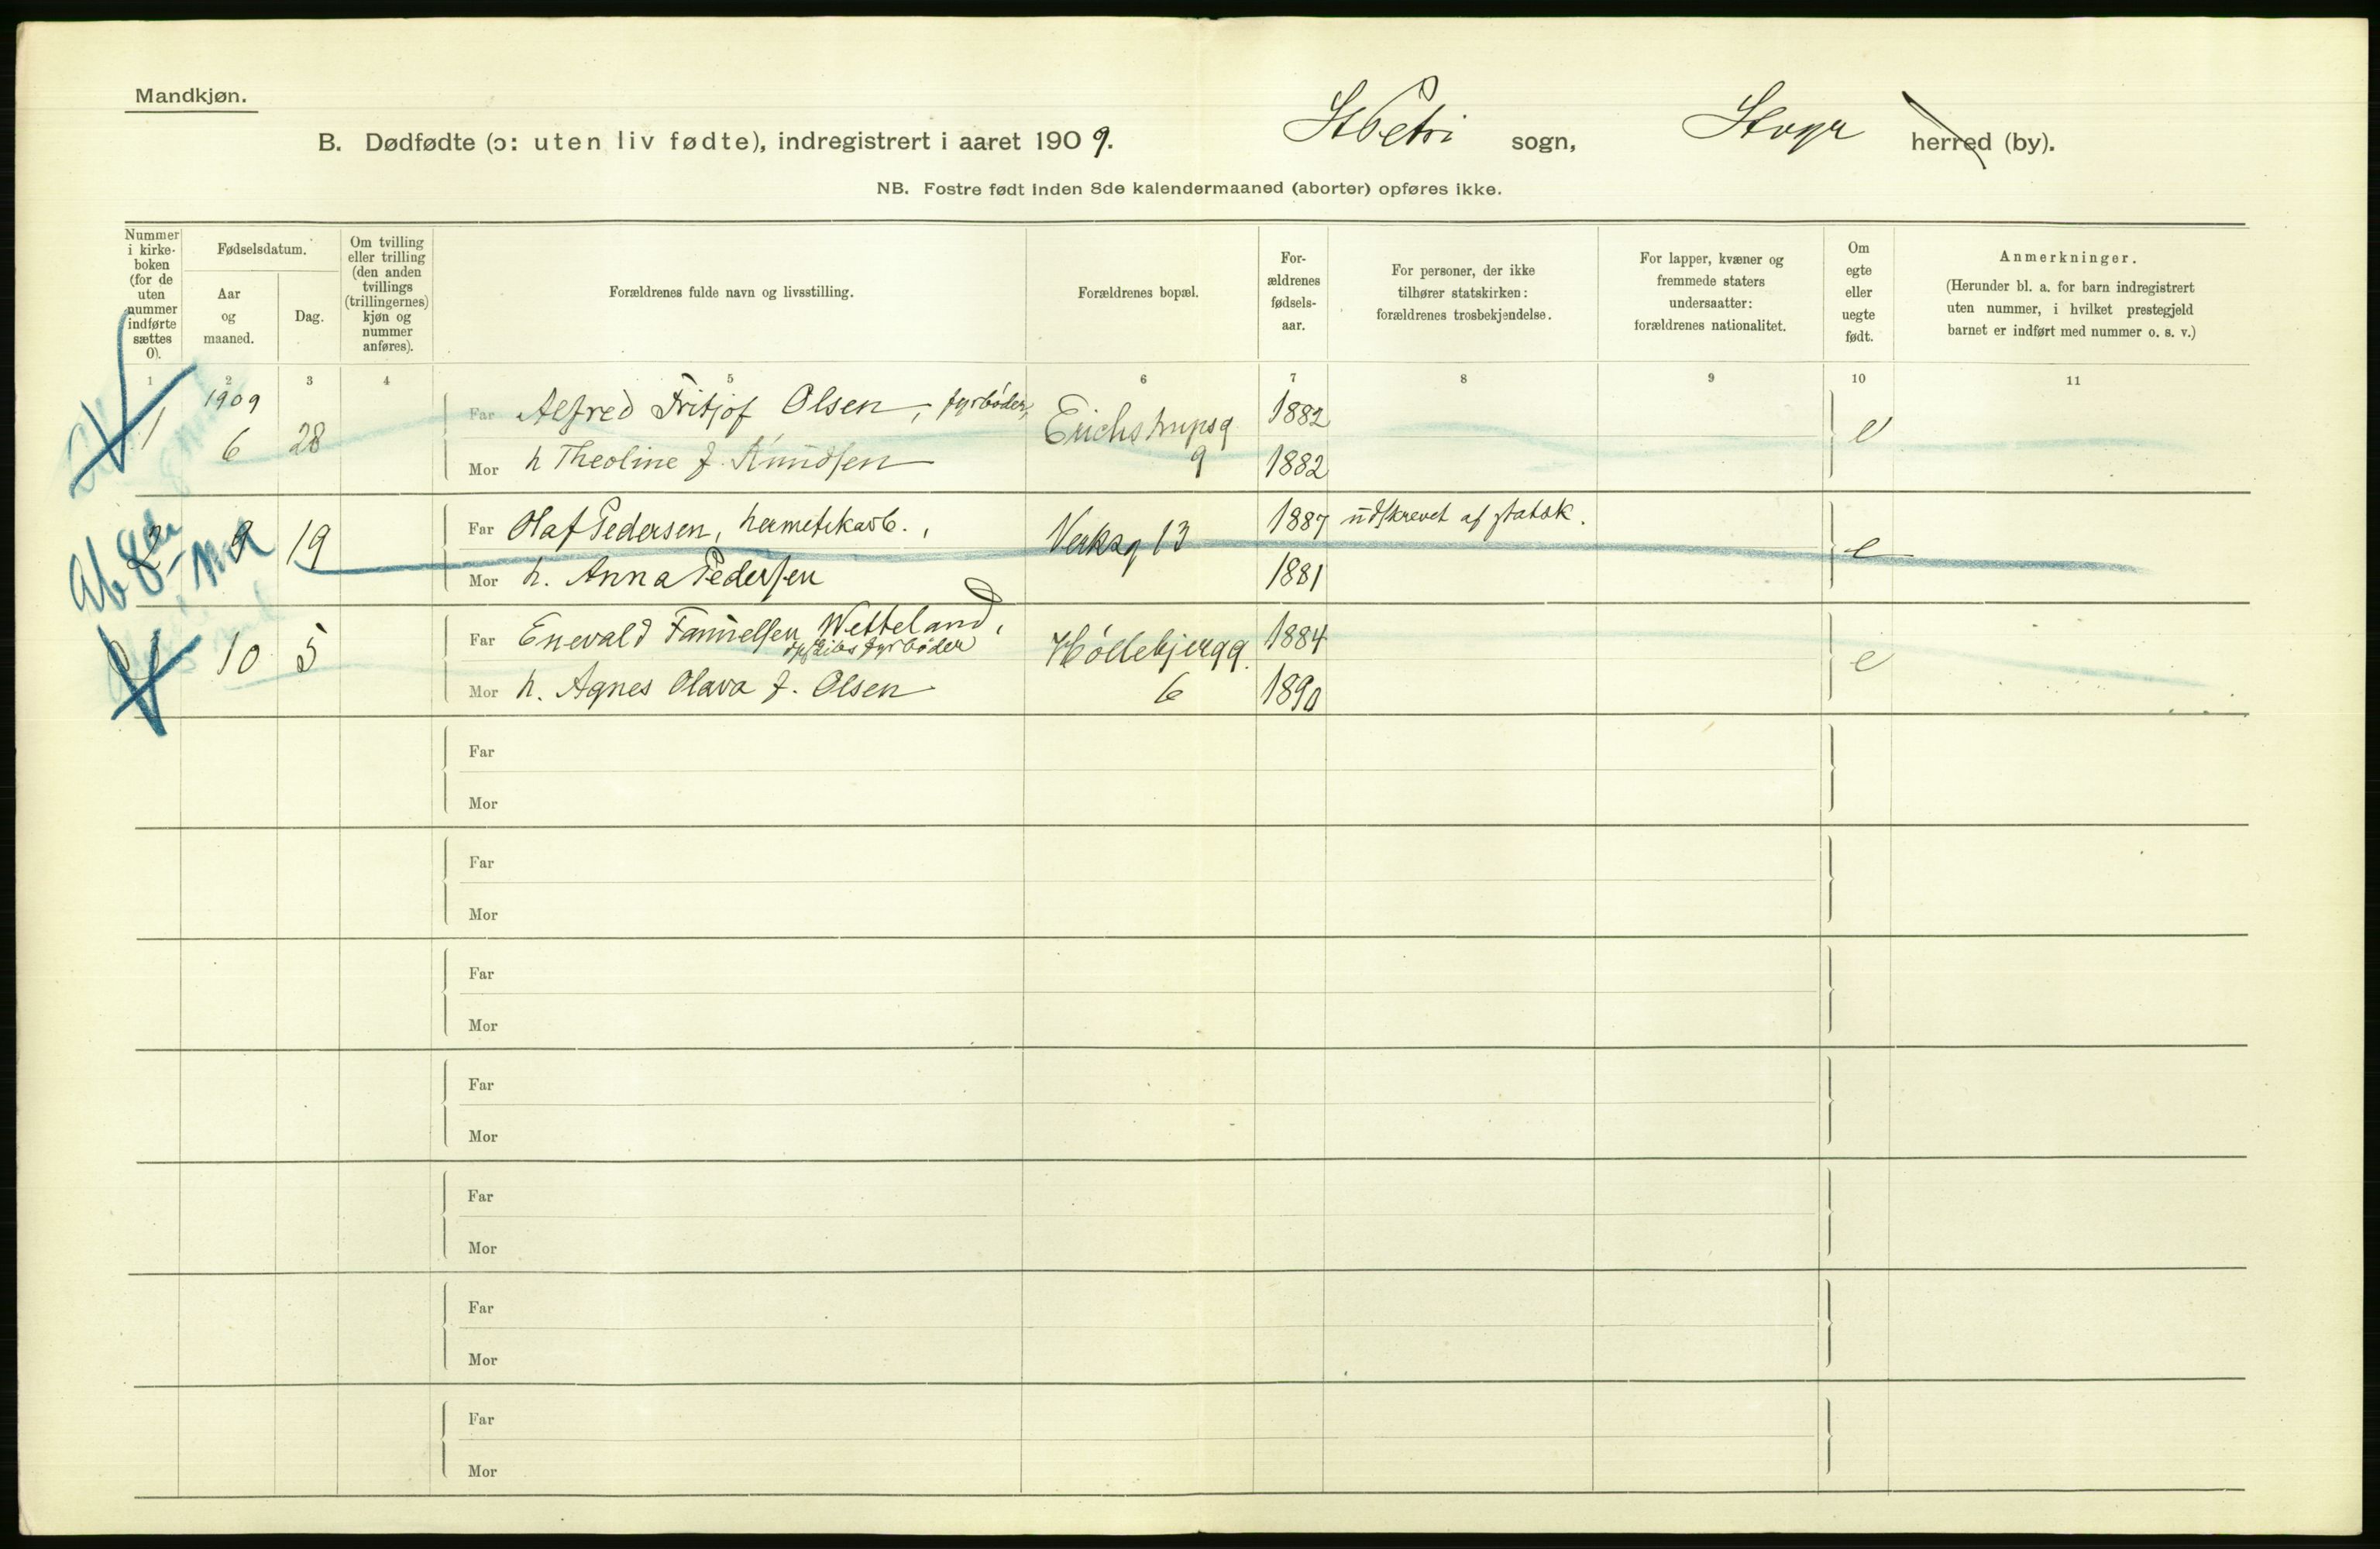 Mandkjøn.
B. Dødfødte (ɔ: uten liv fødte), indregistrert i aaret 1909. St Petri sogn, Stvgr herred (by).
NB. Fostre født inden 8de kalendermaaned (aborter) opføres ikke.
Nummer i kirke-boken (for de uten nummer indførte sættes 0).
Fødselsdatum.
Aar og maaned.
Dag.
Om tvilling eller trilling (den anden tvillings (trillingernes) kjøn og nummer anføres).
Forældrenes fulde navn og livsstilling.
Forældrenes bopæl.
For-ældrenes fødsels-aar.
For personer, der ikke tilhører statskirken: forældrenes trosbekjendelse.
For lapper, kvæner og fremmede staters undersaatter: forældrenes nationalitet.
Om egte eller uegte født.
Anmerkninger.
(Herunder bl. a. for barn indregistrert uten nummer, i hvilket prestegjeld barnet er indført med nummer o. s. v.)
1 2 3 4 5 6 7 8 9 10 11
1909
1 6 28 Far Alfred Fritjof Olsen, fyrbøder, Erichstrupsg 9 1882 e
Mor h Theoline f. Knudsen 1882
2 9 19 Far Olaf Pedersen, hermetikarb., Verksg 13 1887 udskrevet af statsk. e
Mor h. Anna Pedersen 1881
Ab 8de md
10 5 Far Enevald Wetteland, fyrbøder 6 1884 e
Mor h. Agnes Olava f. Olsen 1890
Far
Mor
Far
Mor
Far
Mor
Far
Mor
Far
Mor
Far
Mor
Far
Mor